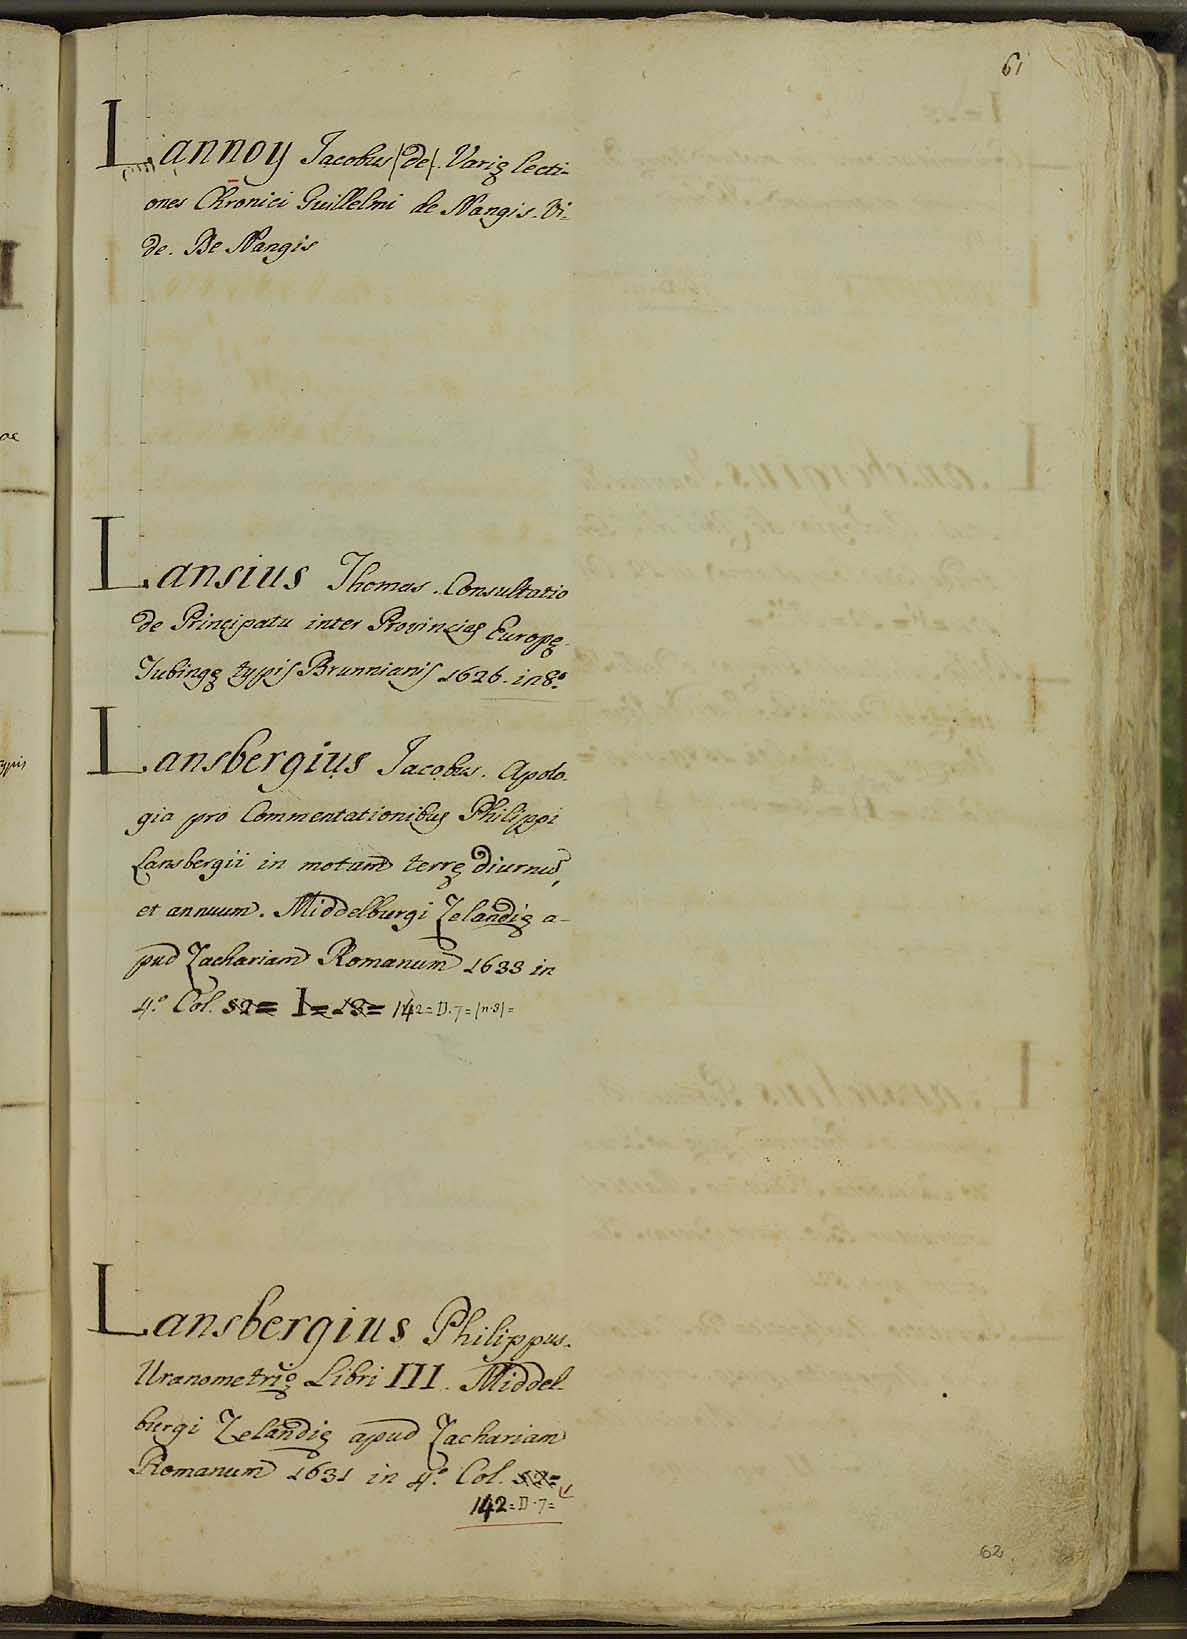 61
Lannoy Jacobus (de). Varię lecti-
ones Chronici Guillelmi de Nangis. Vi-
de. De Nangis
Lansius Thomas. Consultatio
de Principatu inter Provincias Europę
Tubingę typis Brunnianis 1626. in 8.º
Lansbergius Jacobus. Apolo-
gia pro Commentationibus Philippi
Lansbergii in motum terrę diurnũ,
et annuum. Middelburgi Zelandię a-
pud Zachariam Romanum 1633 in
4.º Col. 52= I= 13= 142=D.7=(n.3)=
Lansbergius Philippus.
Uranometrię Libri III. Middel-
burgi Zelandię apud Zachariam
Romanum 1631 in 4.º Col. 52=
142=D.7=
62